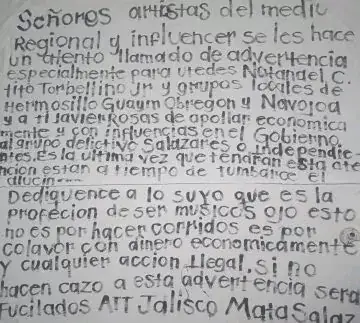 Señores artistas del medio
Regional y influencer se les hace
un atento llamado de advertencia
especialmente para utedes Natanael C.
tito Torbellino Jr y grupos locales de
Hermosillo Guaym Obregon y Navojoa
y a ti Javier Rosas de apollar economica
mente y con influencias en el Gobierno
al grupo delictivo Salazares o independie-
ntes. Es la ultima vez que tendran esta ate
ncion estan a tiempo de tumbarce el
alucin---
Dediquence a lo suyo que es la
profecion de ser musicos ojo esto
no es por hacer corridos es por
colavor con dinero economicamente
y cualquier accion Ilegal, si no
hacen cazo a esta advertencia sera
Fucilados ATT Jalisco Mata Salaz